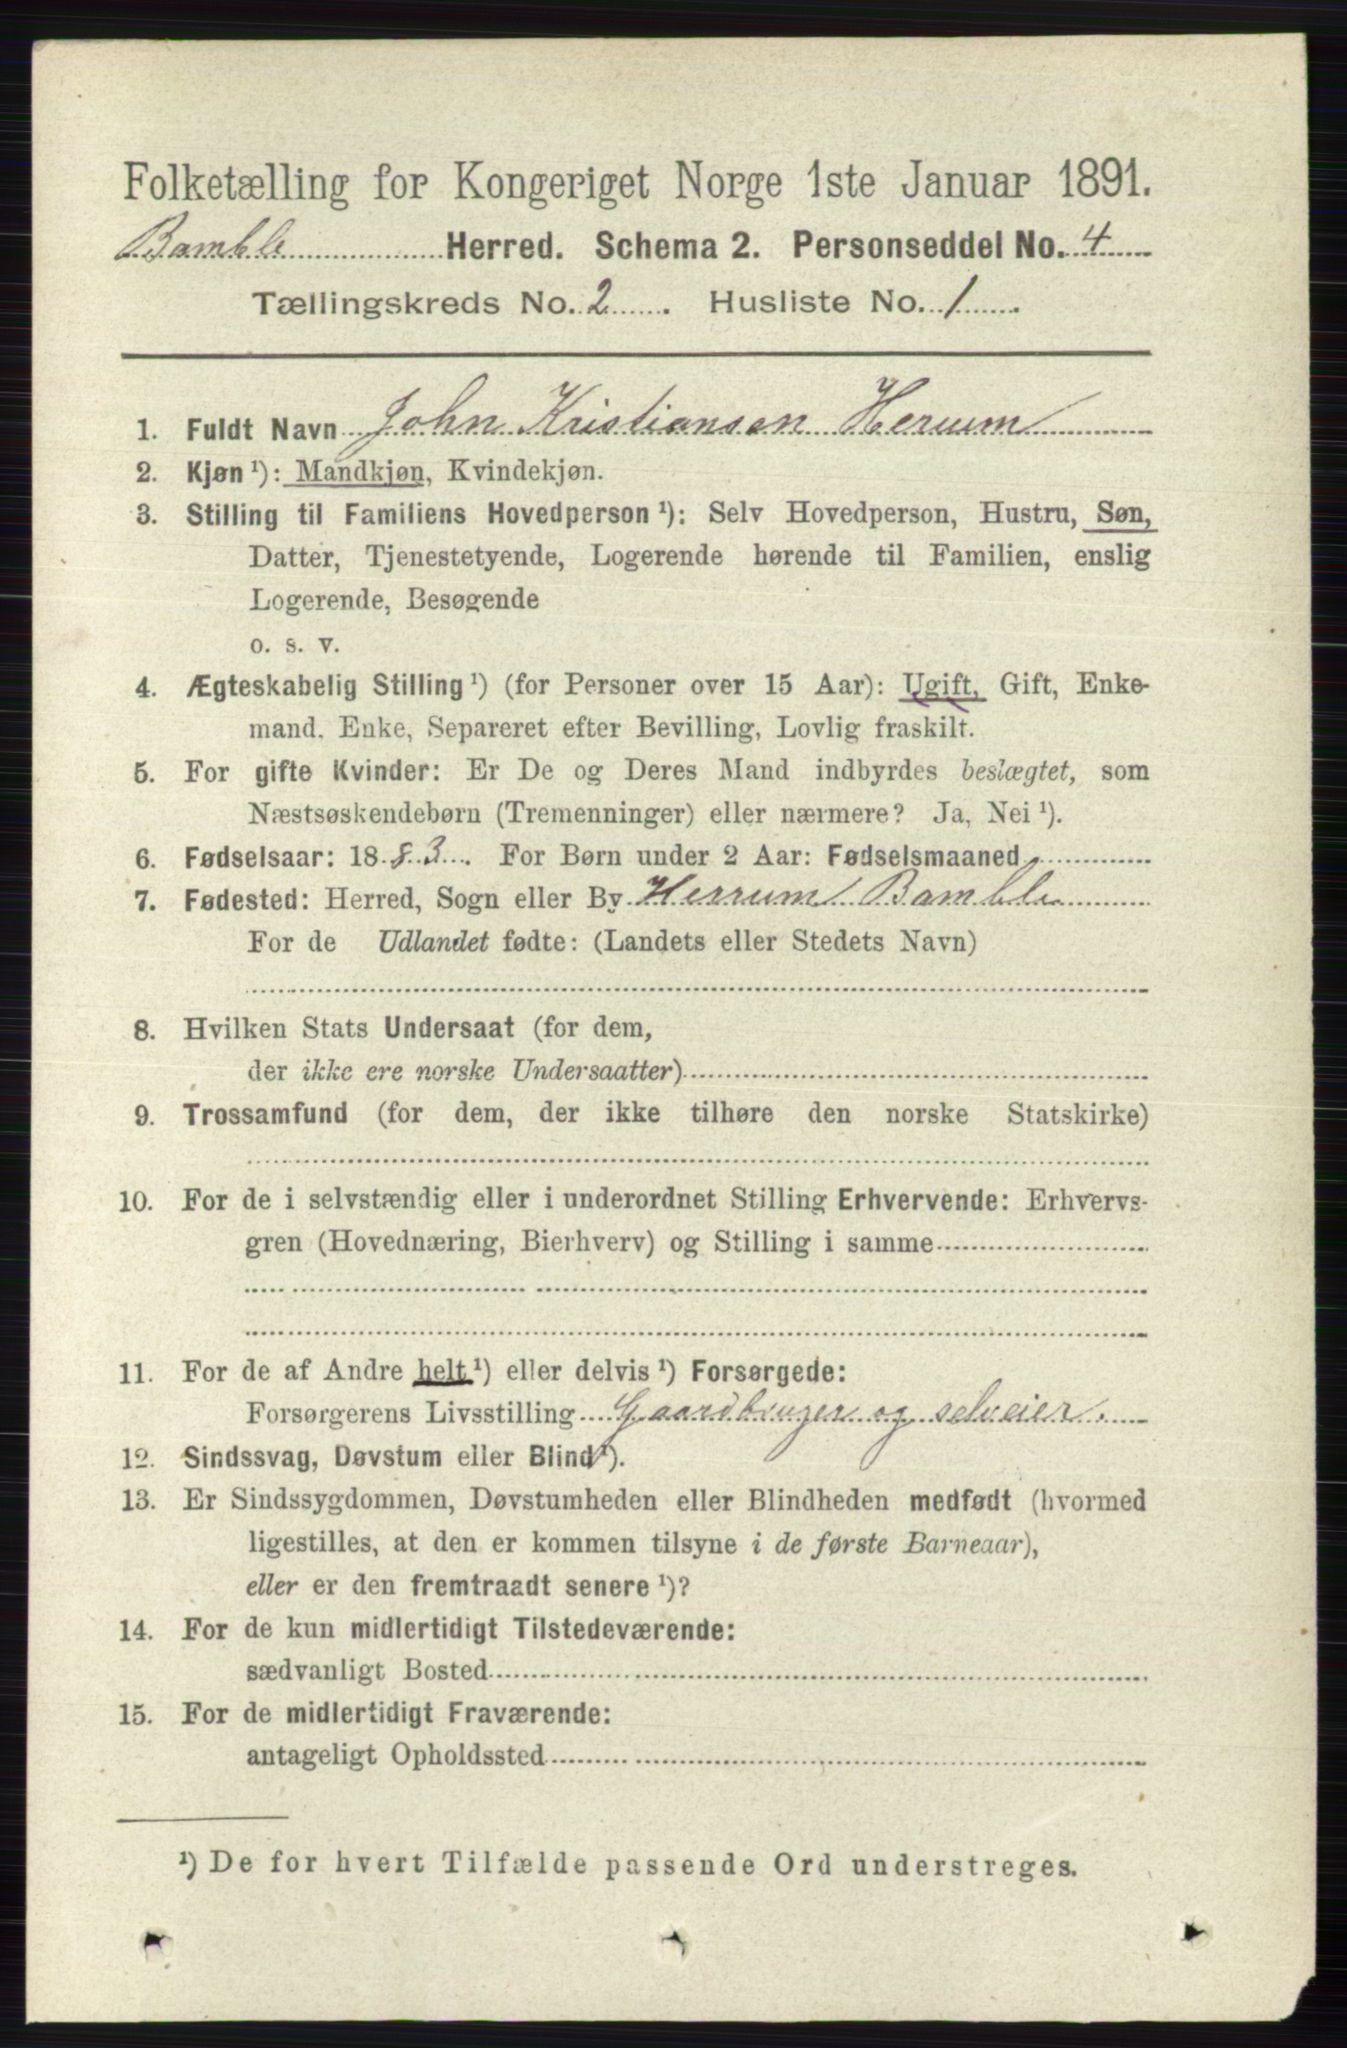 Folketælling for Kongeriget Norge 1ste Januar 1891.
Bamble Herred. Schema 2. Personseddel No. 4
Tællingskreds No. 2. Husliste No. 1.
1. Fuldt Navn John Kristiansen Herum
2. Kjøn ¹): Mandkjøn, Kvindekjøn.
3. Stilling til Familiens Hovedperson ¹): Selv Hovedperson, Hustru, Søn,
Datter, Tjenestetyende, Logerende hørende til Familien, enslig
Logerende, Besøgende
o. s. v.
4. Ægteskabelig Stilling ¹) (for Personer over 15 Aar): Ugift, Gift, Enke-
mand, Enke, Separeret efter Bevilling, Lovlig fraskilt.
5. For gifte Kvinder: Er De og Deres Mand indbyrdes beslægtet, som
Næstsøskendebørn (Tremenninger) eller nærmere? Ja, Nei ¹).
6. Fødselsaar: 1883. For Børn under 2 Aar: Fødselsmaaned
7. Fødested: Herred, Sogn eller By Herrum Bamble
For de Udlandet fødte: (Landets eller Stedets Navn)
8. Hvilken Stats Undersaat (for dem,
der ikke ere norske Undersaatter)
9. Trossamfund (for dem, der ikke tilhøre den norske Statskirke)
10. For de i selvstændig eller i underordnet Stilling Erhvervende: Erhvervs-
gren (Hovednæring, Bierhverv) og Stilling i samme
11. For de af Andre helt ¹) eller delvis ¹) Forsørgede:
Forsørgerens Livsstilling Gaardbruger og selveier.
12. Sindssvag, Døvstum eller Blind ¹).
13. Er Sindssygdommen, Døvstumheden eller Blindheden medfødt (hvormed
ligestilles, at den er kommen tilsyne i de første Barneaar),
eller er den fremtraadt senere ¹)?
14. For de kun midlertidigt Tilstedeværende:
sædvanligt Bosted
15. For de midlertidigt Fraværende:
antageligt Opholdssted
¹) De for hvert Tilfælde passende Ord understreges.